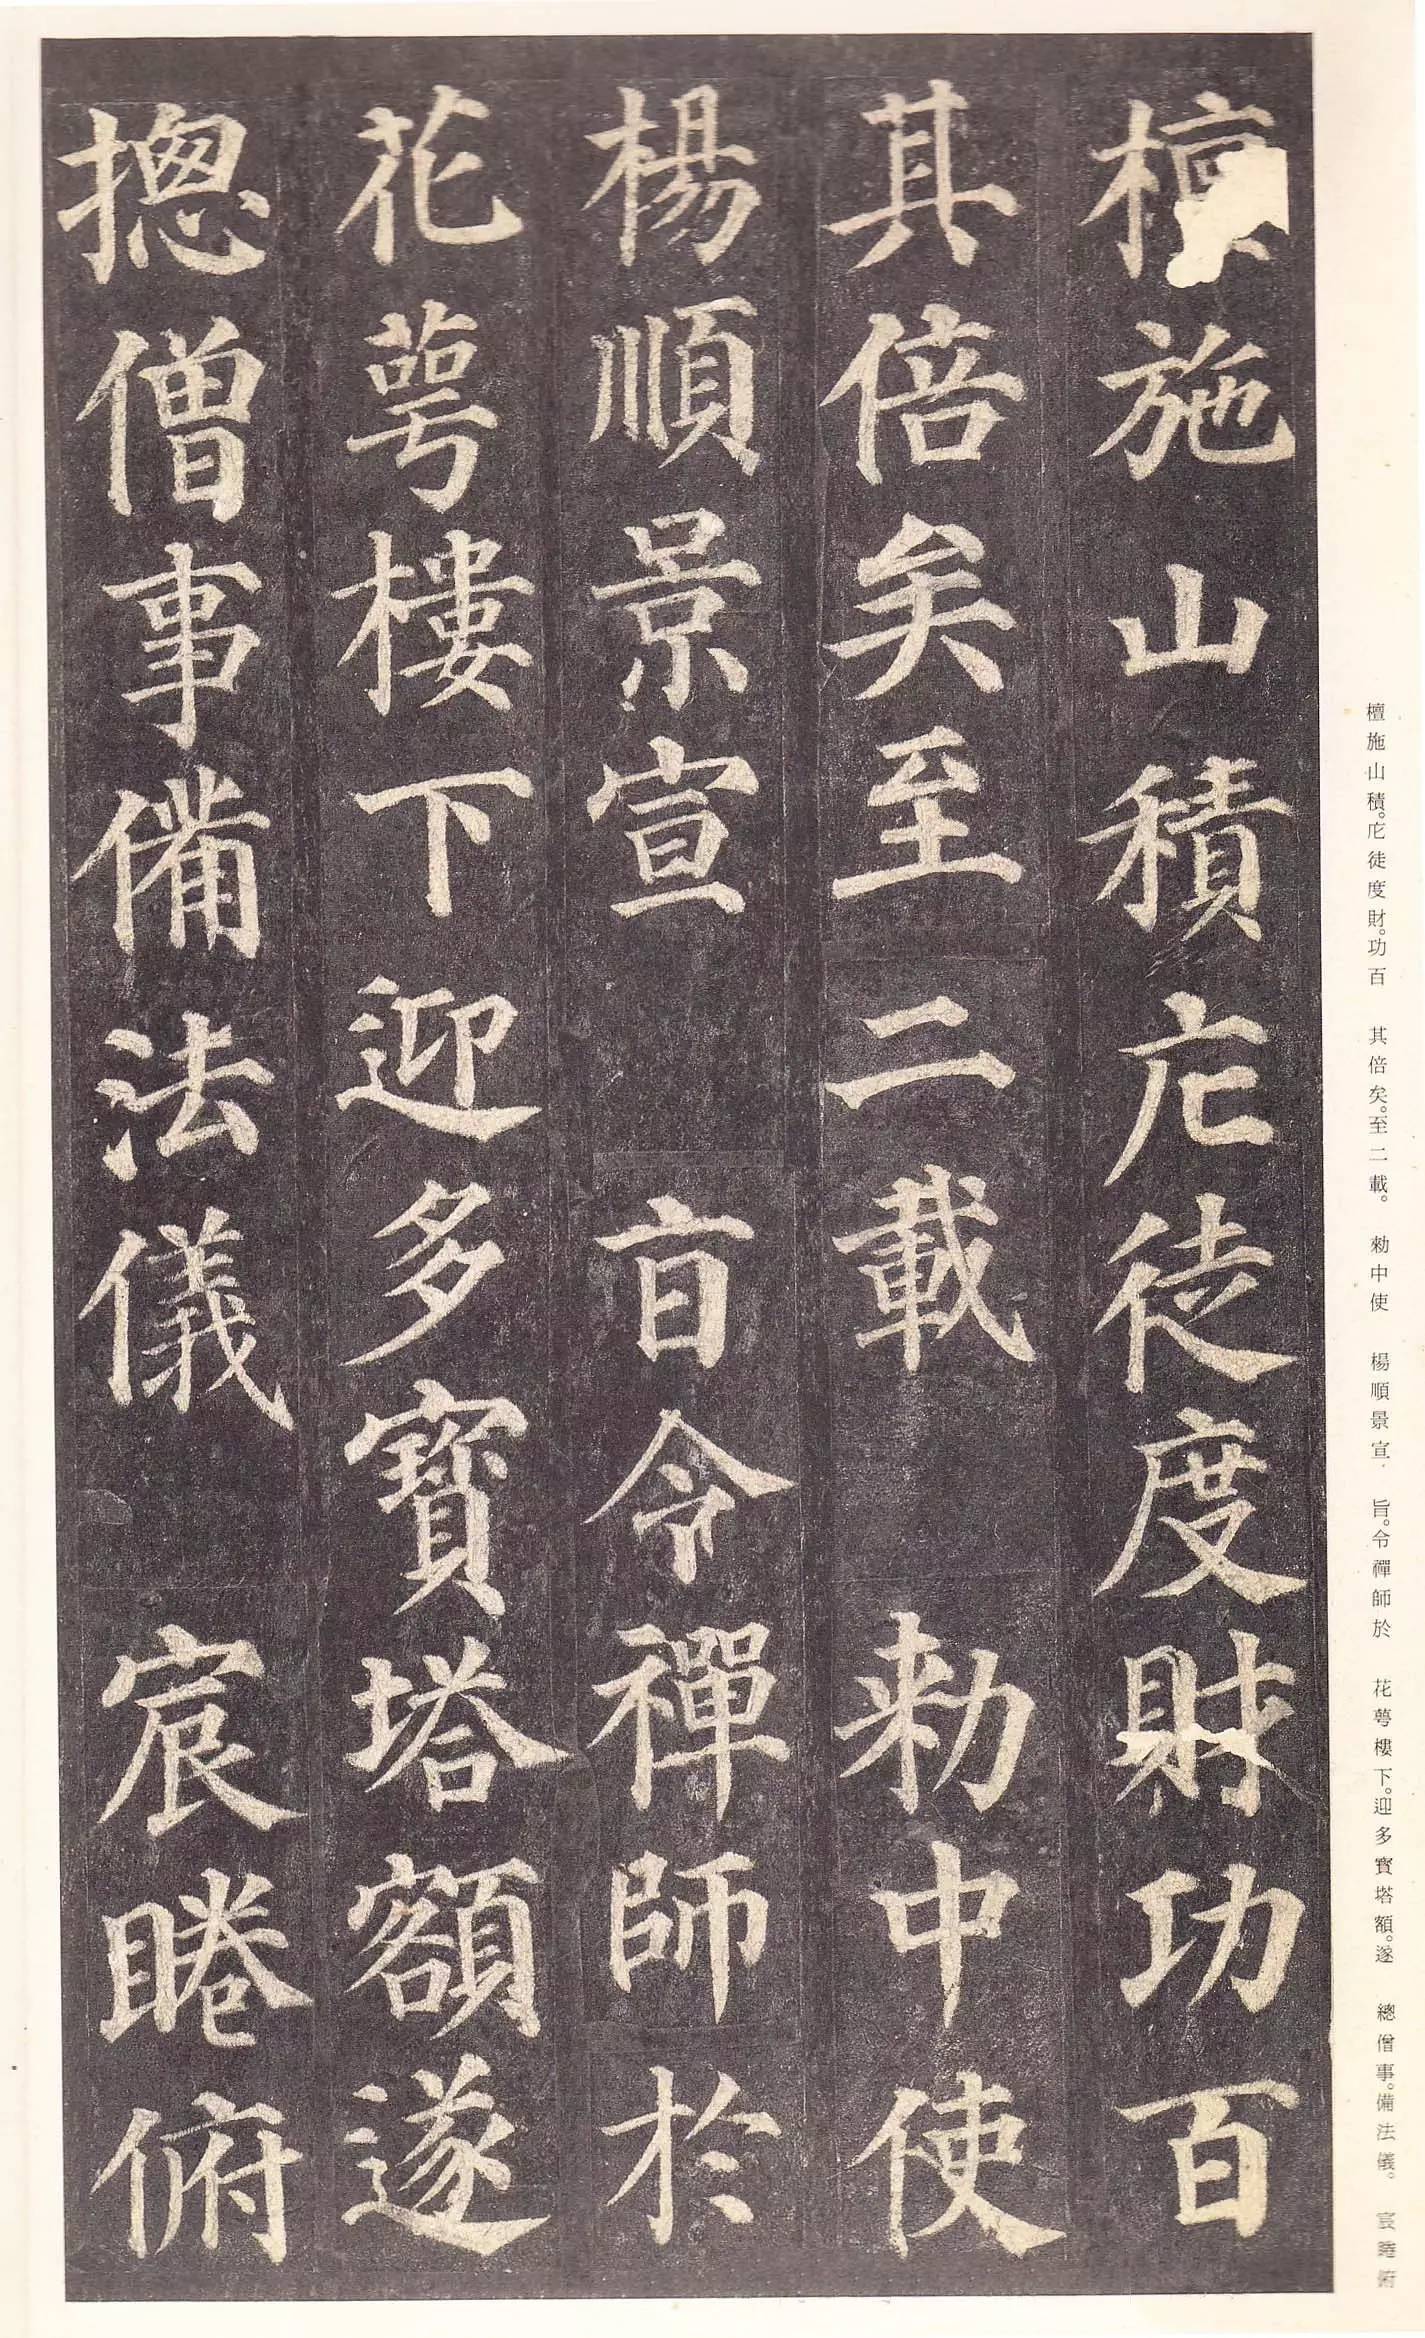 檀施山積庀徒度財功百
其倍矣至二載　勑中使
楊順景宣　旨令禪師於
花萼樓下迎多寶塔額遂
揔僧事備法儀　宸睠俯
檀施山積。庀徒度財。功百　其倍矣。至二載。　勑中使　楊順景宣　旨。令禪師於　花萼樓下。迎多寶塔額。遂　總僧事。備法儀。　宸睠俯